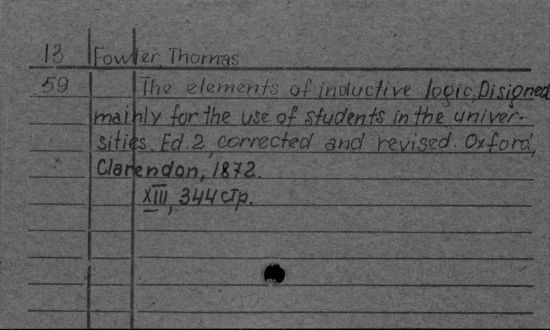 13 Fowler, Thomas
59 The elements of inductive logic. Disigned
mainly for the use of students in the univer-
sities. Ed. 2, corrected and revised. Oxford,
Clarendon, 1872.
XIII, 344 стр.